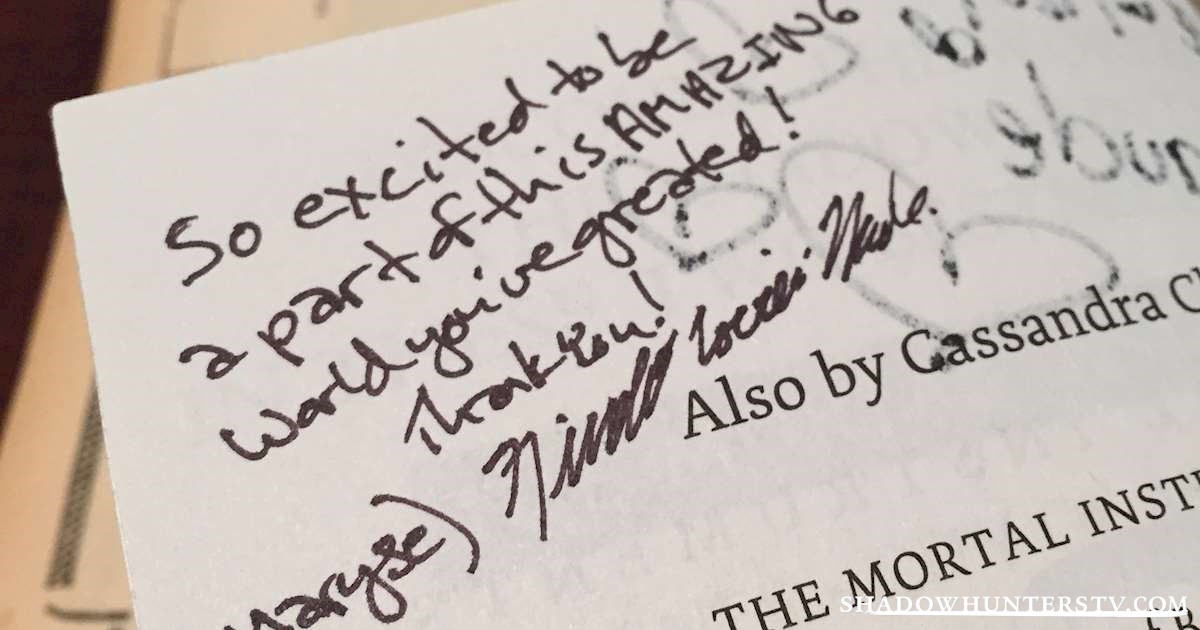 So excited to be
a part of this AMAZING
world you've created!
Thank you!
Maryse)
Also by Cassandra C
THE MORTAL INST
SHADOWHUNTERSTV.COM